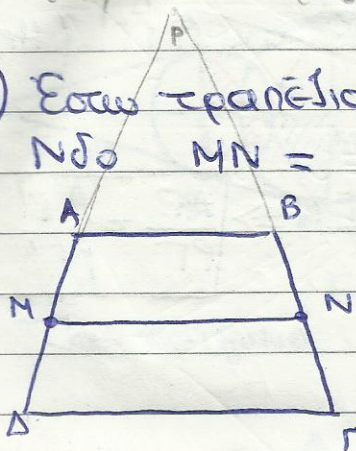 P
) Έστω τραπέζιο
Νδο MN =
A B
M N
Δ Γ